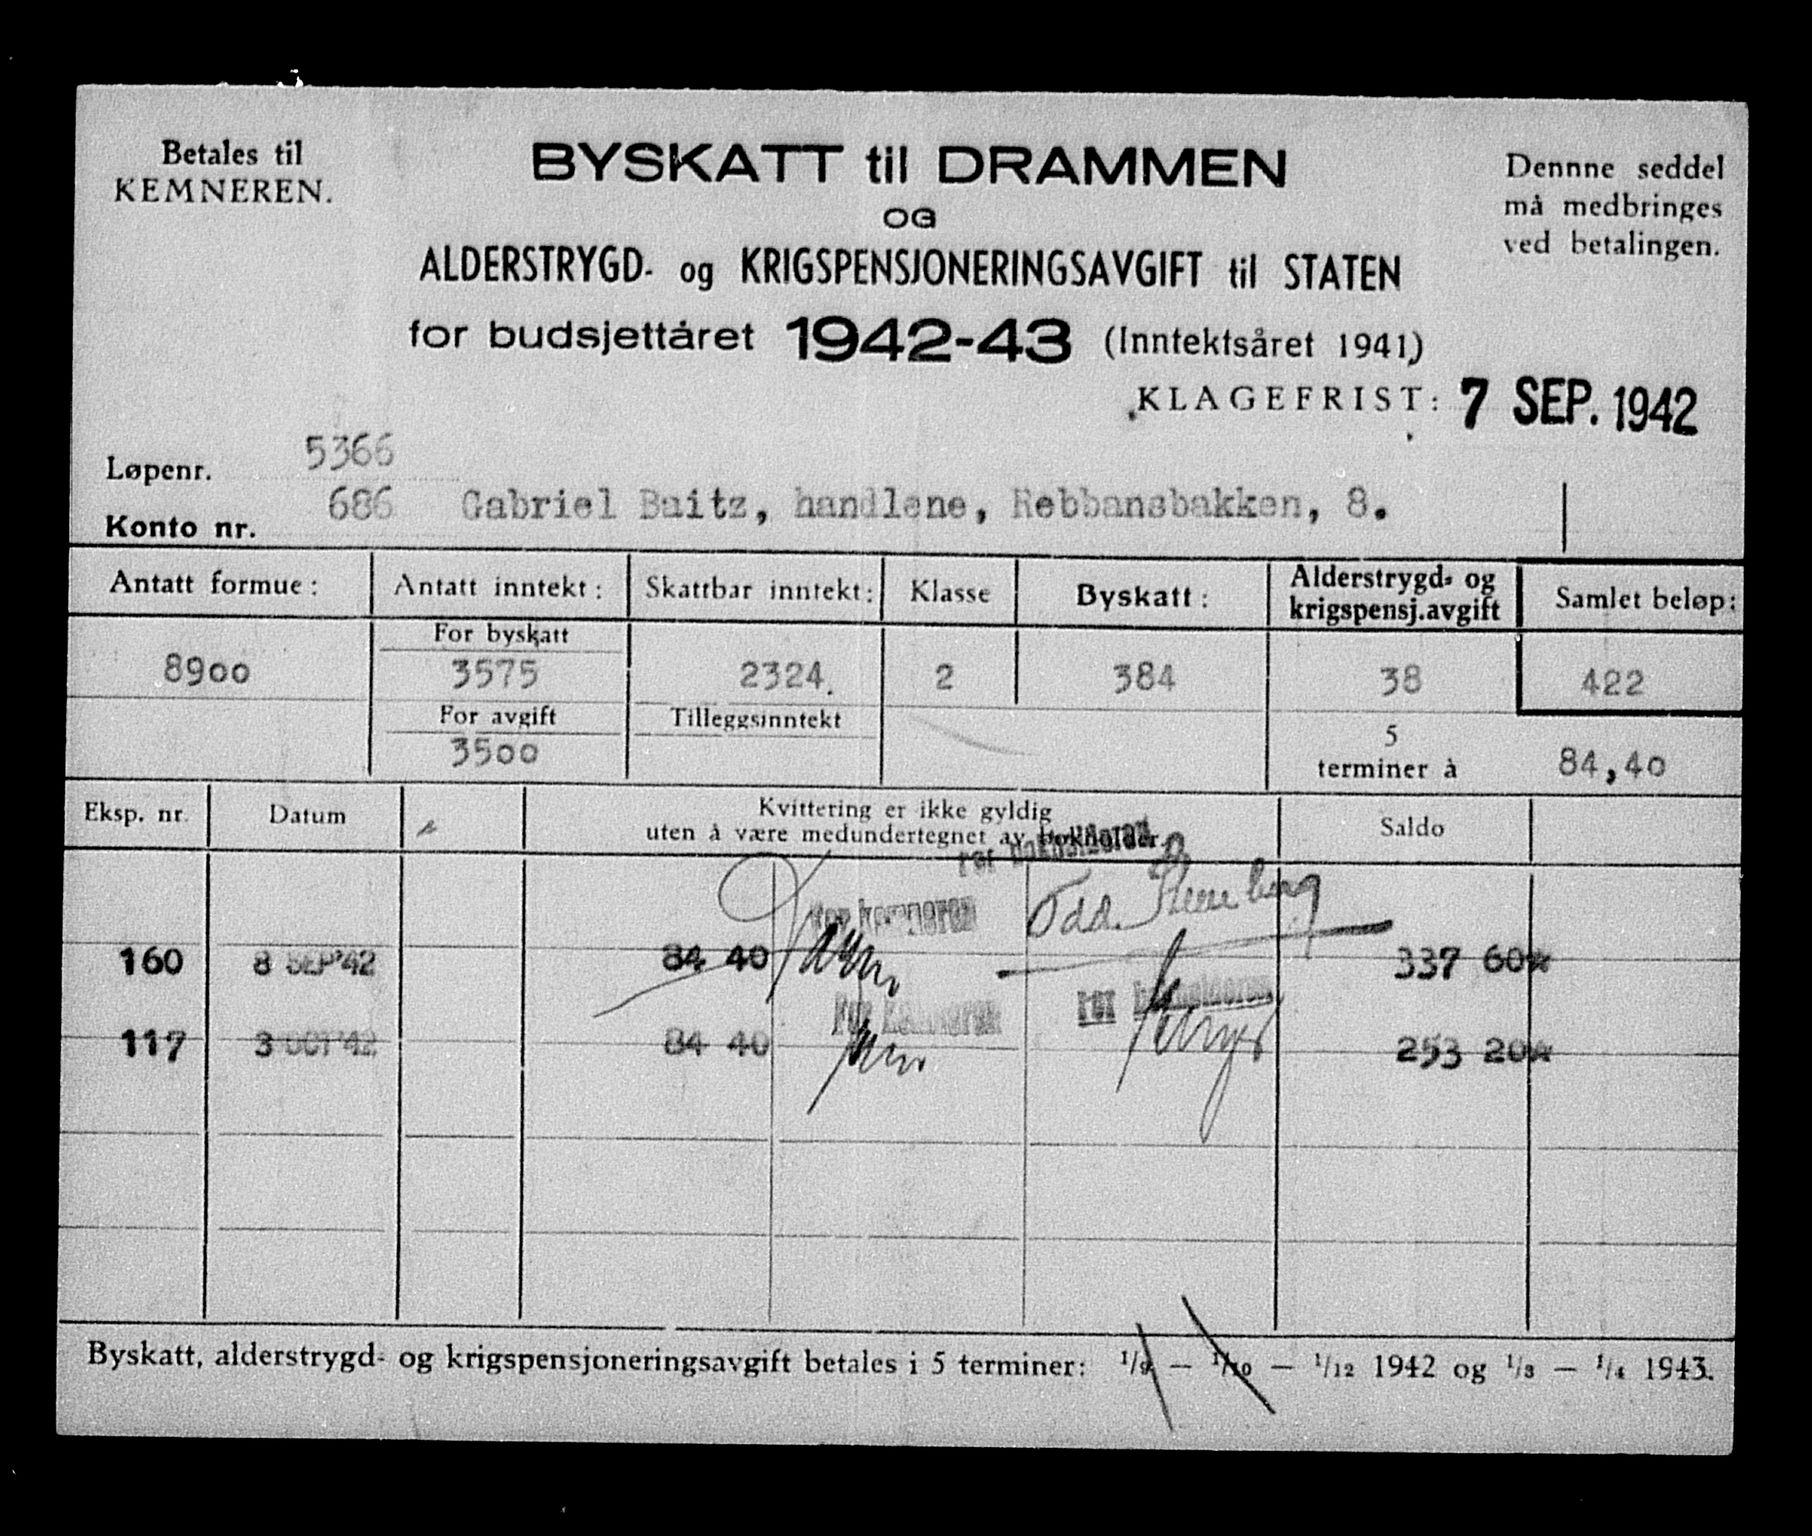 Betales til
KEMNEREN.
BYSKATT til DRAMMEN
OG
ALDERSTRYGD- og KRIGSPENSJONERINGSAVGIFT til STATEN
for budsjettåret 1942-43 (Inntektsåret 1941)
Dennne seddel
må medbringes
ved betalingen.
KLAGEFRIST: 7 SEP. 1942
Løpenr. 5366
Konto nr. 686 Gabriel Buitz, handlene, Rebbansbakken, 8.
Antatt formue: Antatt inntekt: Skattbar inntekt: Klasse Byskatt: Alderstrygd- og krigspensj.avgift Samlet beløp:
For byskatt
8900 3575 2324. 2 384 38 422
For avgift Tilleggsinntekt 5
3500 terminer à 84,40
Eksp. nr. Datum Kvittering er ikke gyldig Saldo
uten å være medundertegnet av bokholder.
For bokholderen
For kemneren Odd.
160 8 SEP'42 84 40 337 60☆
For kemneren For bokholderen
117 3 OCT'42 84 40 253 20☆
Byskatt, alderstrygd- og krigspensjoneringsavgift betales i 5 terminer: 1/9 — 1/10 — 1/12 1942 og 1/3 — 1/4 1943.